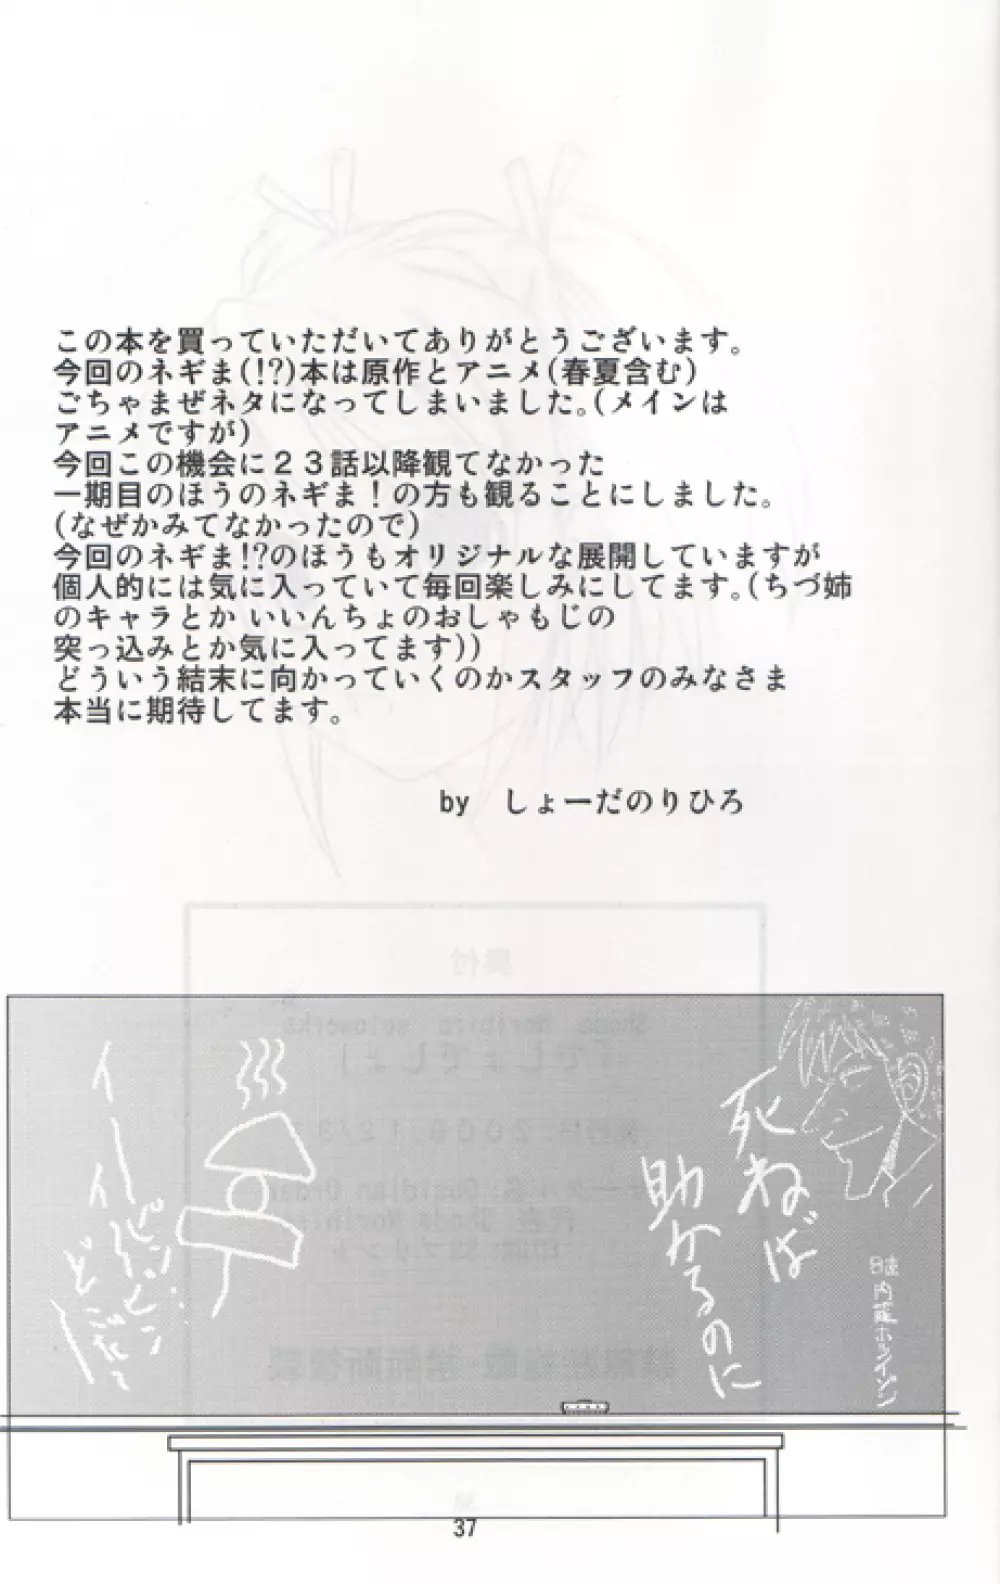 この本を買っていただいてありがとうございます。
今回のネギま(!?)本は原作とアニメ(春夏含む)
ごちゃまぜネタになってしまいました。(メインは
アニメですが)
今回この機会に２３話以降観てなかった
一期目のほうのネギま！の方も観ることにしました。
(なぜかみてなかったので)
今回のネギま!?のほうもオリジナルな展開していますが
個人的には気に入っていて毎回楽しみにしてます。(ちづ姉
のキャラとか いいんちょのおしゃもじの
突っ込みとか気に入ってます))
どういう結末に向かっていくのかスタッフのみなさま
本当に期待してます。
by　しょーだのりひろ
死ねば
助かるのに
37